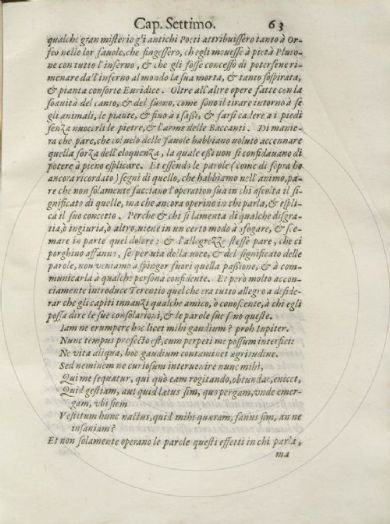 Cap. Settimo. 63
qualche gran misterio gli antichi Poeti attribuissero tanto à Or-
feo nelle lor fauole, che fingessero, ch egli mouesse à pietà Pluto-
ne con tutto l'inferno, & che gli fosse concesso di potersene ri-
menare dall'inferno al mondo la sua morta, & tanto sospirata,
& pianta consorte Euridice. Oltre all'altre opere fatte con la
soauità del canto, & del suono, come sono il tirare intorno à se
gli animali, le piante, & fino à i sassi, & farsi cadere a i piedi
senza nuocerli le pietre, & l'arme delle Baccanti. Di manie-
ra che pare, che col uelo delle fauole habbiano uoluto accennare
quella forza dell'eloquenza, la quale essi non si confidauano di
potere à pieno esplicare. Et essendo le parole (come di sopra ho
ancora ricordato) segni di quello, che habbiamo nell'animo, pa-
re che non solamente facciano l'operation sua in chi ascolta il si-
gnificato di quelle, ma che ancora operino in chi parla, & espli-
ca il suo concetto. Perche & chi si lamenta di qualche disgra-
tia, ò ingiuria, ò altro, uiene in un certo modo à sfogare, & sce-
mare in parte quel dolore: & l'allegrezze stesse pare, che ci
porghino affanno, se per uia della uoce, & del significato delle
parole, non ueniamo à spinger fuori quella passione, & à com-
municarla à qualche persona confidente. Et però molto accon-
ciamente introduce Terentio quel che era tutto allegro a deside-
rar che gli capiti innanzi qualche amico, ò conoscente, à chi egli
possa dire le sue consolationi, & le parole sue sono queste.
Iam ne erumpere hoc licet mihi gaudium? proh Iupiter.
Nunc tempus profecto est, cum perpeti me possum interfici
Ne vita aliqua, hoc gaudium contaminet ægritudine.
Sed neminem ne curiosum interuenire nunc mihi,
Qui me sequatur, qui quò eam rogitando, obtundat, enicet,
Quid gestiam, aut quid lætus sim, quo pergam, unde emer-
gam, vbi siem
Vestitum hunc nactus, quid mihi quæram, sanus sim, an ne
insaniam?
Et non solamente operano le parole questi effetti in chi parla,
ma